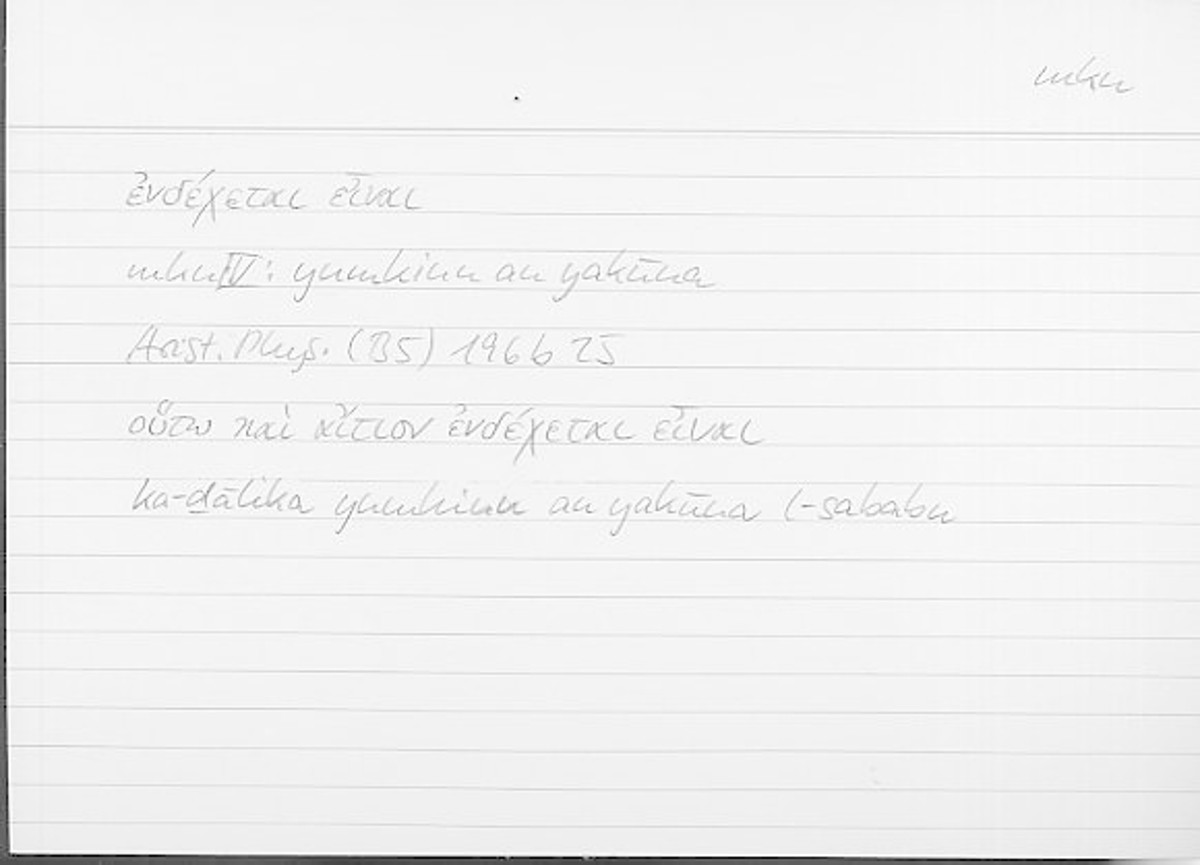 mkn
ἐνδέχεται εἶναι
mkn IV: yumkinu an yakūna
Arist. Phys. (B5) 196b 25
οὕτω καὶ αἴτιον ἐνδέχεται εἶναι
ka-ḏālika yumkinu an yakūna l-sababu